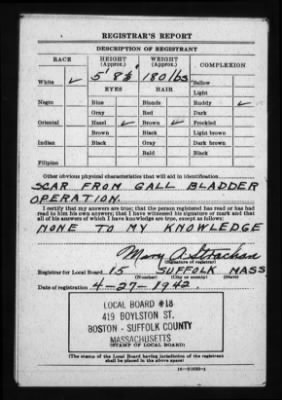 REGISTRAR'S REPORT
DESCRIPTION OF REGISTRANT
RACE HEIGHT (Approx.) WEIGHT (Approx.) COMPLEXION
White ✓ 5' 8½ 180 lbs Sallow
EYES HAIR Light
Negro Blue Blonde Ruddy ✓
Gray Red Dark
Oriental Hazel ✓ Brown ✓ Freckled
Brown Black Light brown
Indian Black Gray Dark brown
Bald Black
Filipino
Other obvious physical characteristics that will aid in identification
SCAR FROM GALL BLADDER
OPERATION.
I certify that my answers are true; that the person registered has read or has had
read to him his own answers; that I have witnessed his signature or mark and that
all of his answers of which I have knowledge are true, except as follows:
NONE TO MY KNOWLEDGE
Mary A. Strachan
(Signature of registrar)
Registrar for Local Board 15 SUFFOLK MASS
(Number) (City or county) (State)
Date of registration 4-27-1942
LOCAL BOARD #18
419 BOYLSTON ST.
BOSTON - SUFFOLK COUNTY
MASSACHUSETTS
(STAMP OF LOCAL BOARD)
(The stamp of the Local Board having jurisdiction of the registrant
shall be placed in the above space)